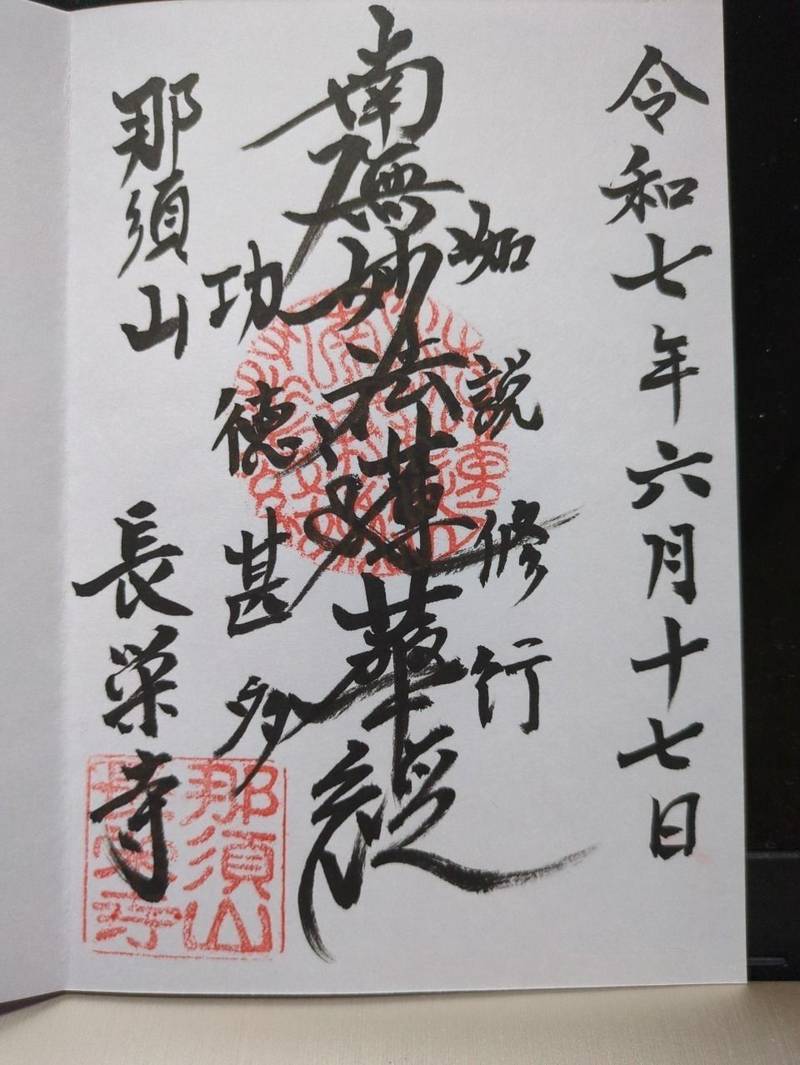 令和七年六月十七日
如説修行
南無妙法蓮華経
功徳甚多
那須山 長栄寺
那須山
長栄寺